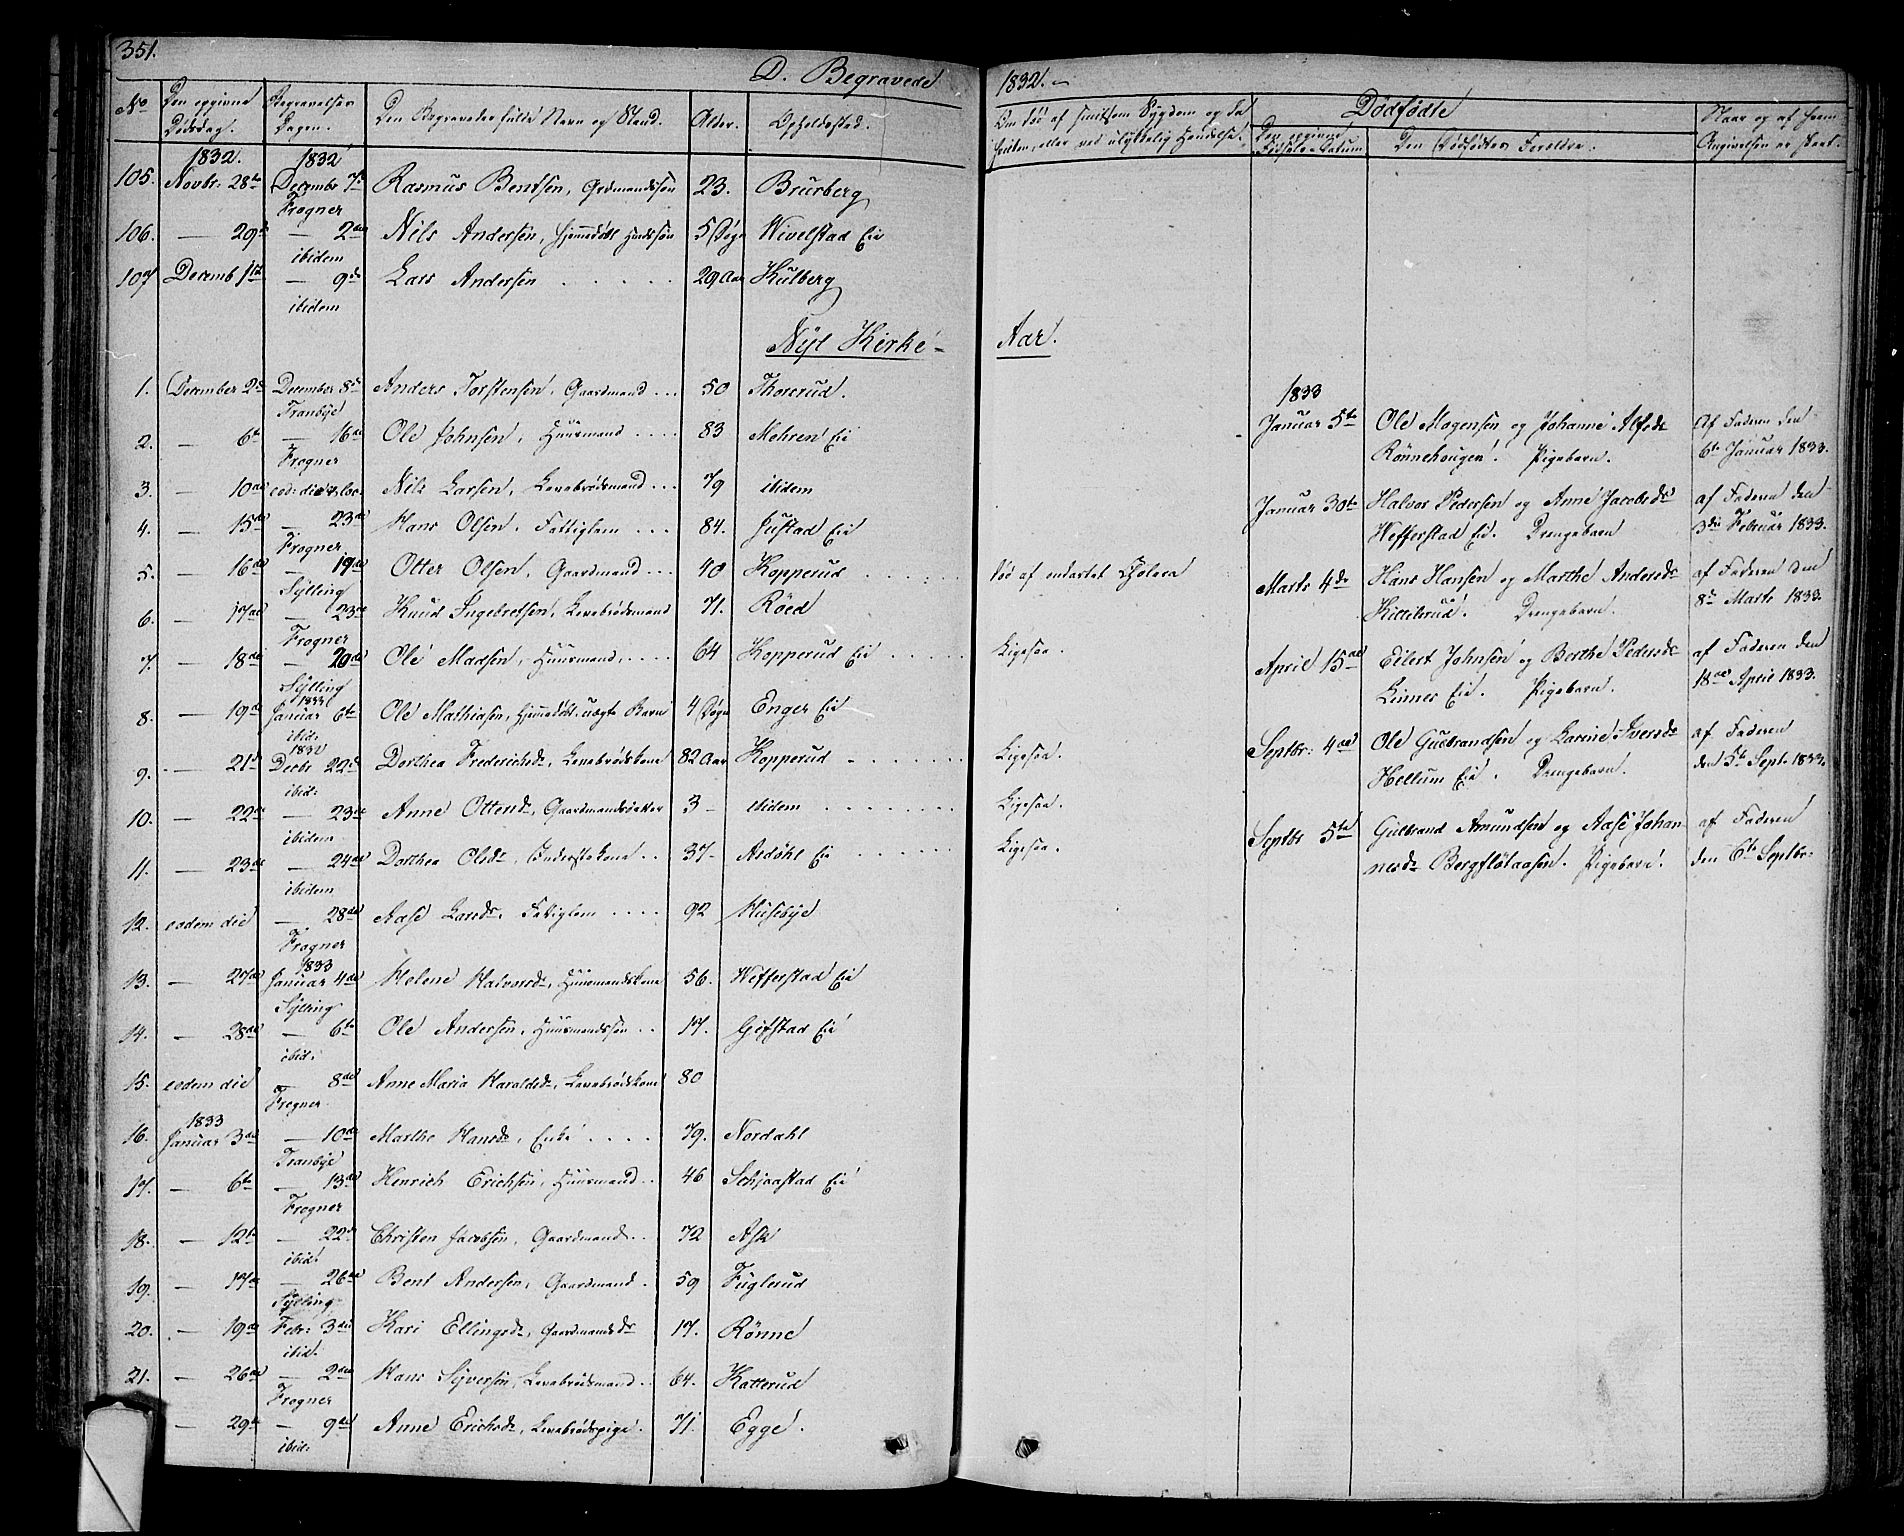 351.
D. Begravede 1832.
No Den opgivne Dødsdag. Begravelses Dagen. Den Begravedes fulde Navn og Stand. Alder. Opholdsstad. Om død af smitsom Sygdom og da hvilken, eller ved ulykkelig Hendelse.
Dødfødte
Den opgivne Fødsels-Datum Den Dødfødtes Foreldre. Naar og af hvem Angivelsen er skeet.
1832. 1832
105. Novbr: 28de Decembr 7de Rasmus Bentsen, Grdmandssøn 23. Brurberg
Frogner
106. — 29de — 2den Nils Andersen, hjemmedøbt 5 Døgn Wivelstad Eie
ibidem
107 Decemb 1ste — 9de Lars Andersen 29 Aar Kulberg
ibidem
Nyt Kirke-Aar.
1. December 2den December 8de Anders Torstensen, Gaardmand 50 Thorerud.
Tranbye
2. — 6te — 16de Ole Johnsen, Huusmand 83 Mehren Eie
Frogner
3. — 10de eod: die & loc. Nils Larsen, Levebrødsmand 79 ibidem
4. — 15de — 23de Hans Olsen, Fattiglem 84. Justad Eie
Frogner
5. — 16de — 19de Otter Olsen, Gaardmand 40 Kopperud død af endartet Cholera
Sylling
6. — 17de — 23de Knud Ingebretsen, Levebrødsmand 71. Röed
Frogner
7. — 18de — 20de Ole Madsen, Huusmand 64 Kopperud Eie Ligesaa.
Sylling
1833
8. — 19de Januar 6te Ole Mathiasen, Hjemmedøbt, uægte Barn 4 Døgn Enger Eie
ibid:
1832
9. — 21de Decbr 22de Dorthea Frederichsdr, Levebrødskone 82 Aar Kopperud Ligesaa.
ibid:
10. — 22de — 23de Anne Ottersdr, Gaardmandsdatter 3 — ibidem Ligesaa.
ibidem
11. — 23de — 24de Dorthea Olsdr, Inderstkone 37. Asdøhl Eie Ligesaa.
ibidem
12. eodem die — 28de Aase Larsdr, Fattiglem 92 Huseby
Frogner
1833
13. — 27de Januar 4de Helene Halvorsdr, Huusmandskone 56. Wefferstad Eie
Sylling
14. — 28de — 6te Ole Andersen, Huusmandssøn 17. Gifstad Eie
ibid:
15. eodem die — 8de Anne Maria Haraldsdr, Levebrødskone 80
Frogner
1833
16. Januar 3de — 10de Marthe Hansdr, Enke 79. Nordahl
Tranbye
17. — 6te — 13de Henrich Erichsen, Huusmand 46 Schjaastad Eie
Frogner
18. — 12te — 22de Christen Jacobsen, Gaardmand 72 Ask
ibid:
19. — 17de — 26de Bent Andersen, Gaardmand 59 Fuglerud
Sylling
20. — 19de Febr: 3die Kari Ellingsdr, Gaardmandsdr 17. Rönne
ibid.
21. — 26de — 2den Hans Syversen, Levebrødsmand 64. Katterud
Frogner
— 29de — 9de Anne Erichsdr, Levebrødspige 71. Egge.
ibid:
1833
Januar 5te Ole Mogensen og Johanne Alfsdr Af Faderen den
Rönnehougen. Pigebarn. 6te Januar 1833.
Januar 30te Halvor Pedersen og Anne Jacobsdr af Faderen den
Wefferstad Eie. Drengebarn 3die Februar 1833.
Marts 4de Hans Hansen og Marthe Andersdr af Faderen den
Kittilsrud. Drengebarn. 8de Marts 1833.
April 15de Eilert Johnsen og Berthe Pedersdr af Faderen den
Linnes Eie. Pigebarn. 18de April 1833.
Septbr: 4de Ole Gulbrandsen og Karine Iversdr af Faderen
Hellum Eie. Drengebarn. den 5te Sept. 1833.
Septbr 5te Gulbrand Amundsen og Aase Johan- af Faderen
nesdr Bergflötaasen. Pigebarn. den 6te Septbr: